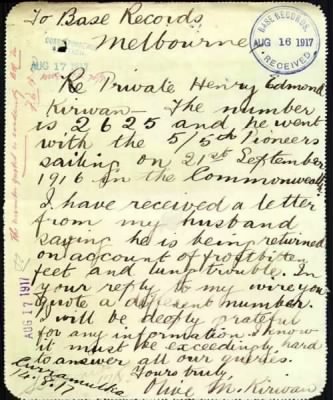 To Base Records
Melbourne
AUG 17 1917
BASE RECORDS
AUG 16 1917
RECEIVED
Re Private Henry Edmond
Kirwan – The number
is 2625 and he went
with the 5/5th Pioneers
sailing on 21st September
1916 in the Commonwealth
I have received a letter
from my husband
saying he is being returned
on account of frostbitten
feet and lung trouble. In
your reply to my wire you
quote a different number.
I will be deeply grateful
for any information. I know
it must be exceedingly hard
to answer all our queries.
Yours truly,
Olive M. Kirwan
Curramulka
14.8.17
AUG 17 1917